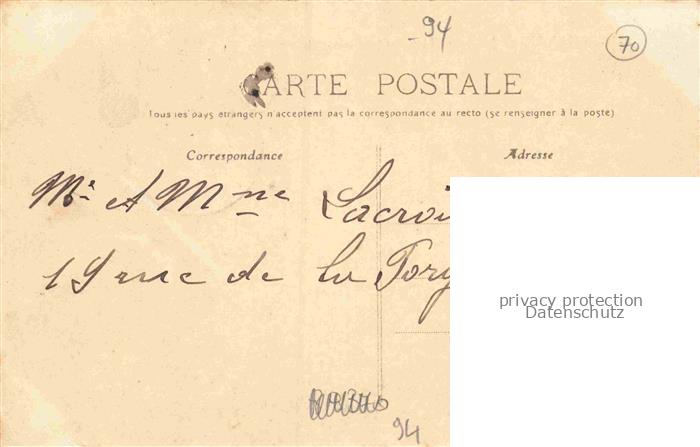 94
70
CARTE POSTALE
Tous les pays étrangers n'acceptent pas la correspondance au recto (se renseigner à la poste)
Correspondance
Adresse
Mr. et Mme Lacroi
19 rue de la
privacy protection
Datenschutz
94